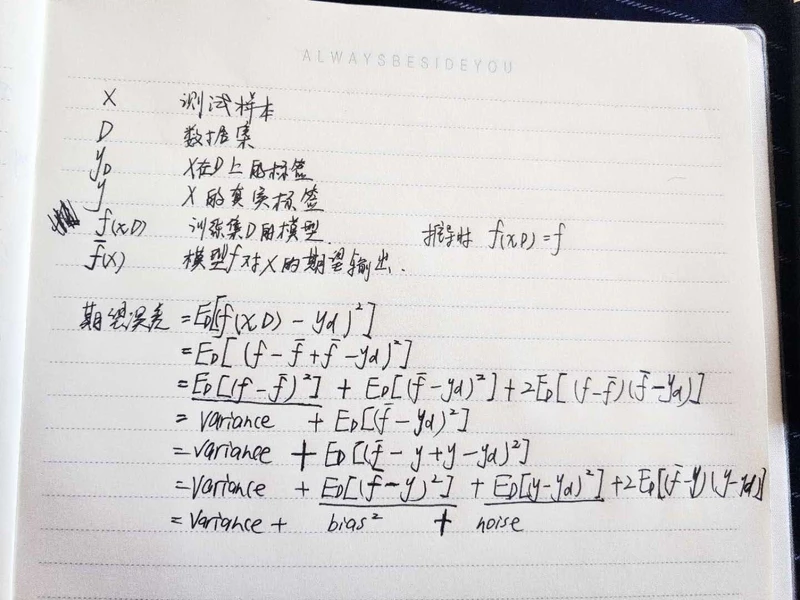 ALWAYSBESIDEYOU
X 测试样本
D 数据集
y_D X在D上的标签
y X的真实标签
f(x,D) 训练集D的模型. 推导时 f(x,D)=f
f̄(X) 模型f对X的期望输出.
期望误差 = E_D[(f(x,D) - y_d)²]
= E_D[(f - f̄ + f̄ - y_d)²]
= E_D[(f - f̄)²] + E_D[(f̄ - y_d)²] + 2E_D[(f - f̄)(f̄ - y_d)]
= variance + E_D[(f̄ - y_d)²]
= variance + E_D[(f̄ - y + y - y_d)²]
= variance + E_D[(f̄ - y)²] + E_D[(y - y_d)²] + 2E_D[(f̄ - y)(y - y_d)]
= variance + bias² + noise